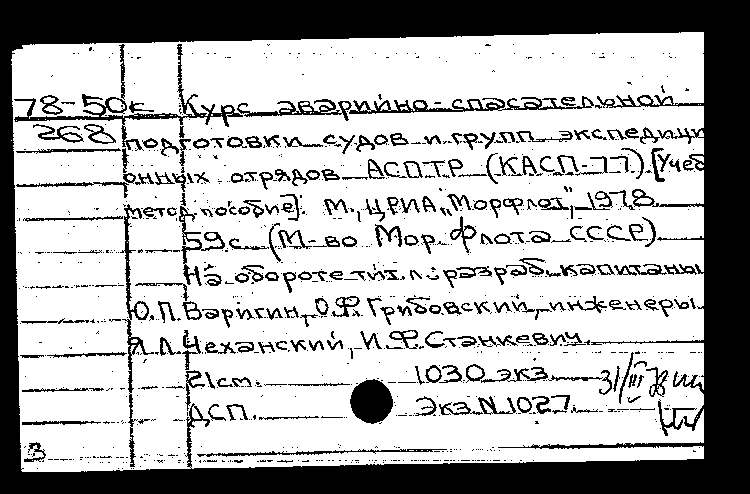 78-50к Курс аварийно-спасательной
268 подготовки судов и групп экспедици
онных отрядов АСПТР (КАСП-77). [Учеб
метод. пособие]. М., ЦРИА „Морфлот", 1978.
59с. (М-во Мор. Флота СССР).
На обороте тит. л.: разраб. капитаны
О.П. Варигин, О.Ф. Грибовский, инженеры
Я.Л. Чеханский, И.Ф. Станкевич.
21см. 1030 экз. 31/III 78
ДСП. Экз N 1027.
В